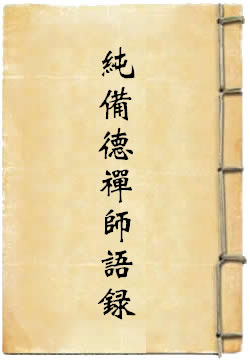 純備德禪師語録